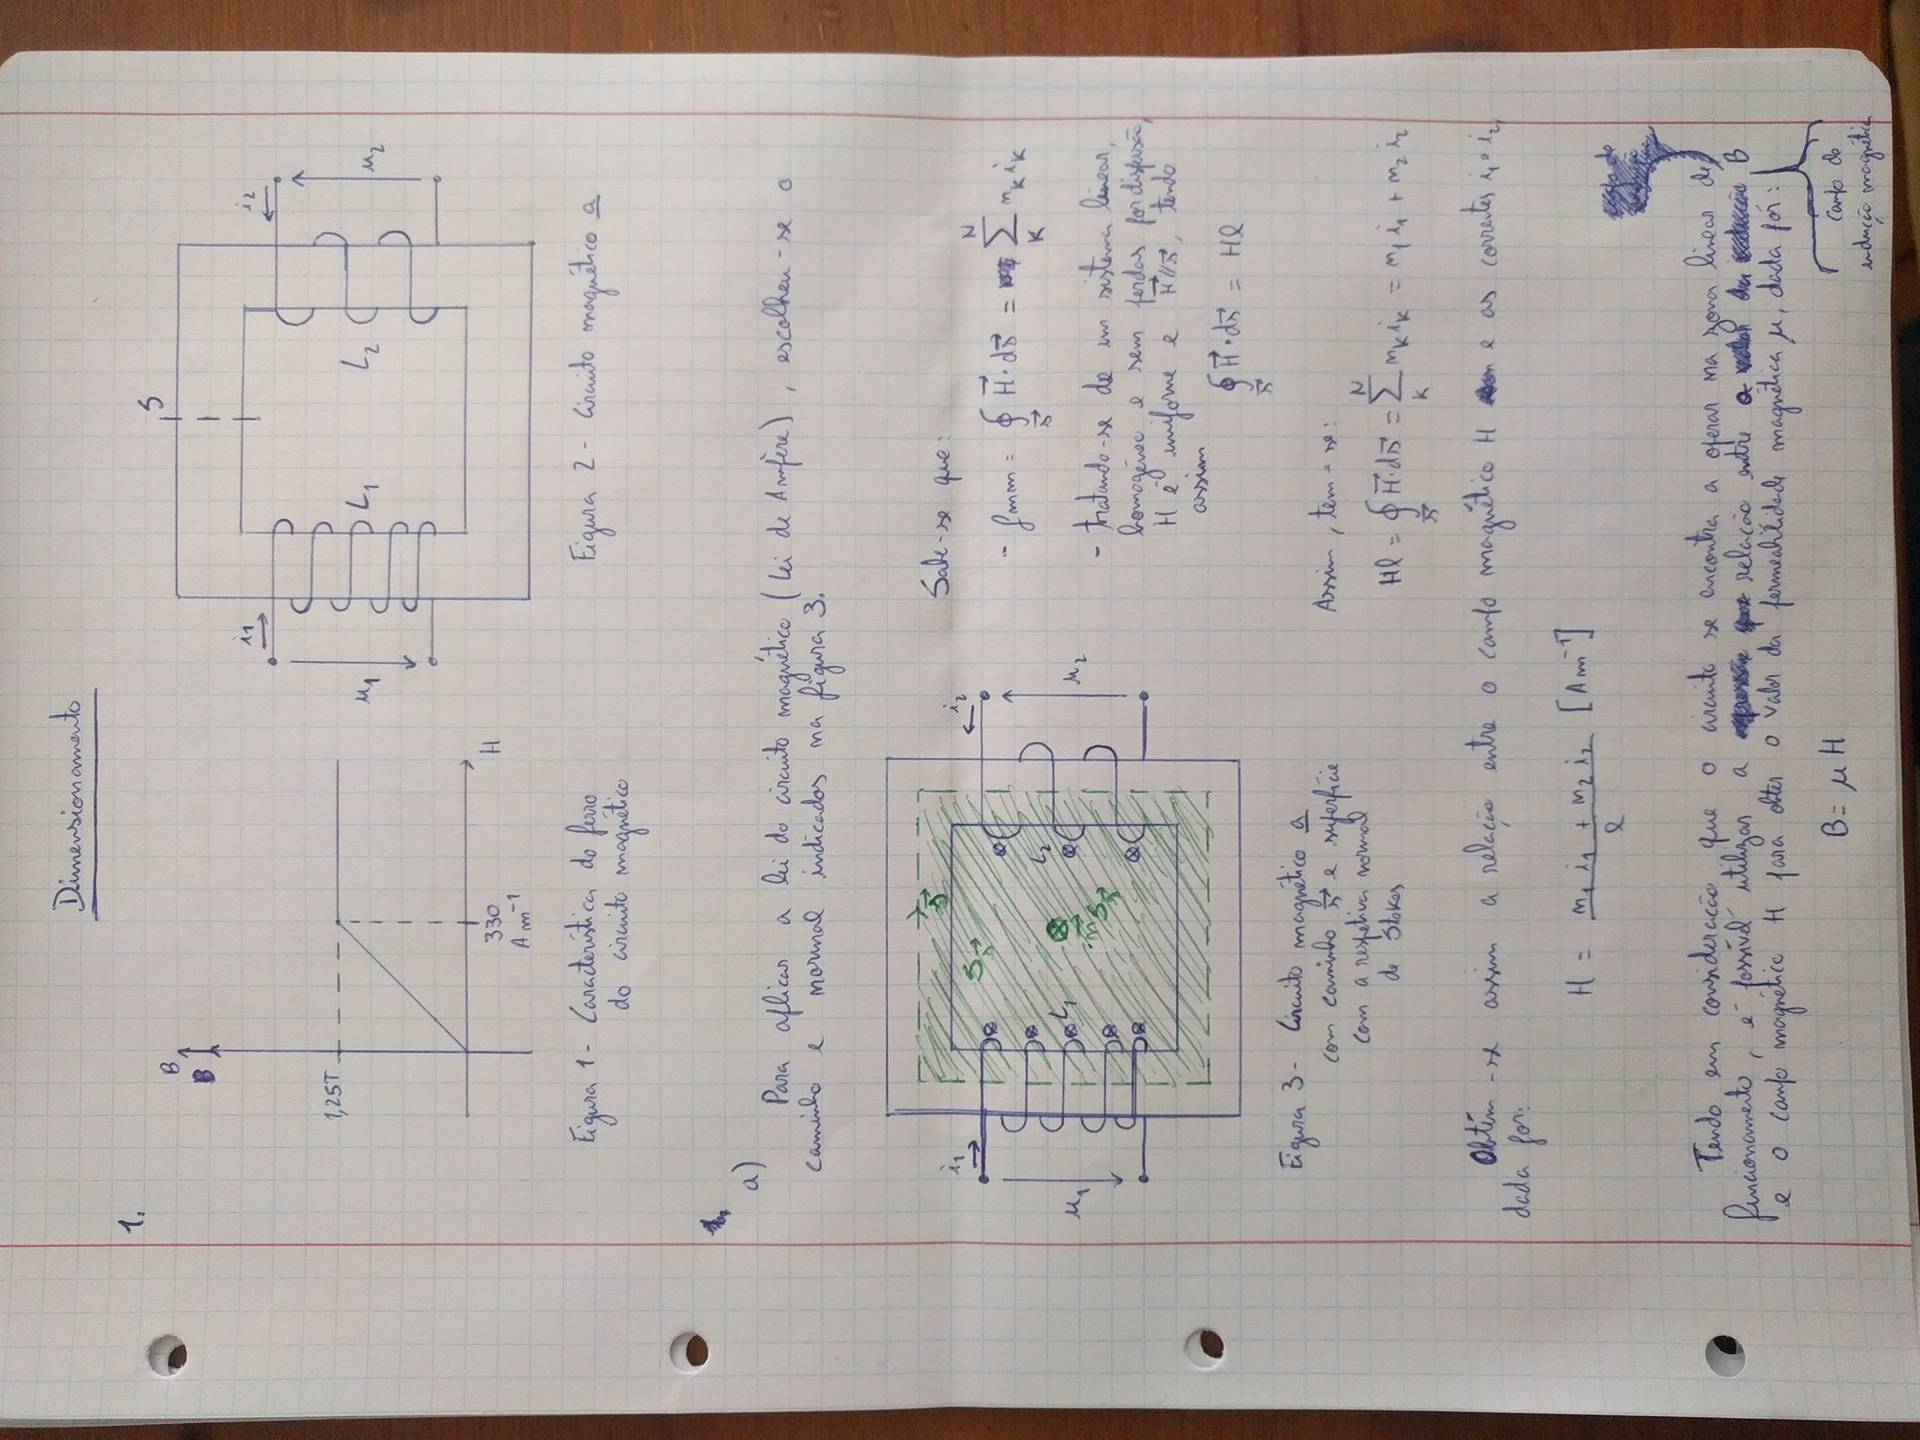 Dimensionamento
1.
B
B
1,25T
330
A m⁻¹
H
Figura 1 - Característica do ferro
do circuito magnético
S
i₁
i₂
u₁
L₁
L₂
u₂
Figura 2 - Circuito magnético a
a)
Para aplicar a lei do circuito magnético (Lei de Ampère), escolheu-se o
caminho e normal indicados na figura 3.
i₁
i₂
u₁
L₁
L₂
u₂
S
n
Figura 3 - Circuito magnético a
com caminho s⃗ e superfície
com a respetiva normal
de Stokes
Sabe-se que:
- fmm = ∮ H⃗·ds⃗ = ∑ nₖ iₖ
- tratando-se de um sistema linear,
homogéneo e sem perdas por dispersão,
H é uniforme e H⃗//s⃗, tendo
assim
∮ H⃗·ds⃗ = Hl
Assim, tem-se:
Hl = ∮ H⃗·ds⃗ = ∑ nₖ iₖ = n₁ i₁ + n₂ i₂
Obtém-se assim a relação entre o campo magnético H e as correntes i₁ e i₂,
dada por:
H = (n₁ i₁ + n₂ i₂) / l [A m⁻¹]
Tendo em consideração que o circuito se encontra a operar na zona linear de
funcionamento, é possível utilizar a relação entre B
e o campo magnético H para obter o valor da permeabilidade magnética μ, dada por:
campo de
indução magnética
B = μH